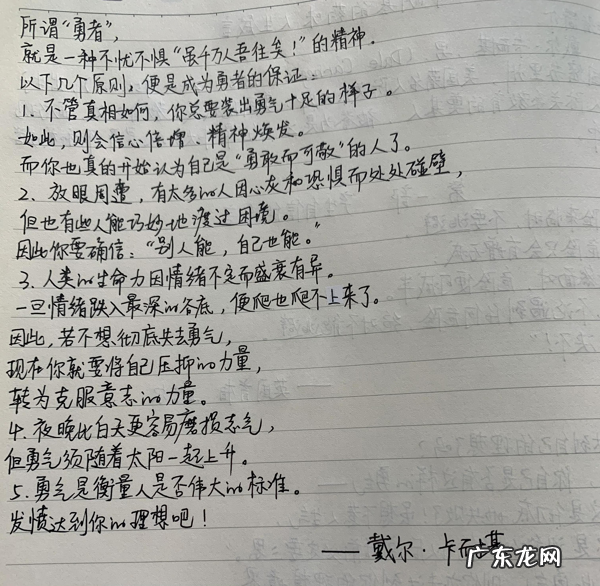 所谓“勇者”,
就是一种不忧不惧“虽千万人吾往矣!”的精神.
以下几个原则,便是成为勇者的保证:
1、不管真相如何,你总要装出勇气十足的样子。
如此,则会信心倍增、精神焕发。
而你也真的开始认为自己是“勇敢而可敬”的人了。
2、放眼周遭,有太多的人因心灰和恐惧而处处碰壁,
但也有些人能巧妙地渡过困境。
因此你要确信:“别人能,自己也能。”
3、人类的生命力因情绪不定而盛衰有异。
一旦情绪跌入最深的谷底,便爬也爬不上来了。
因此,若不想彻底失去勇气,
现在你就要将自己压抑的力量,
转为克服意志的力量。
4、夜晚比白天更容易磨损志气,
但勇气须随着太阳一起上升。
5、勇气是衡量人是否伟大的标准。
发愤达到你的理想吧!
——戴尔·卡耐基
广东龙网